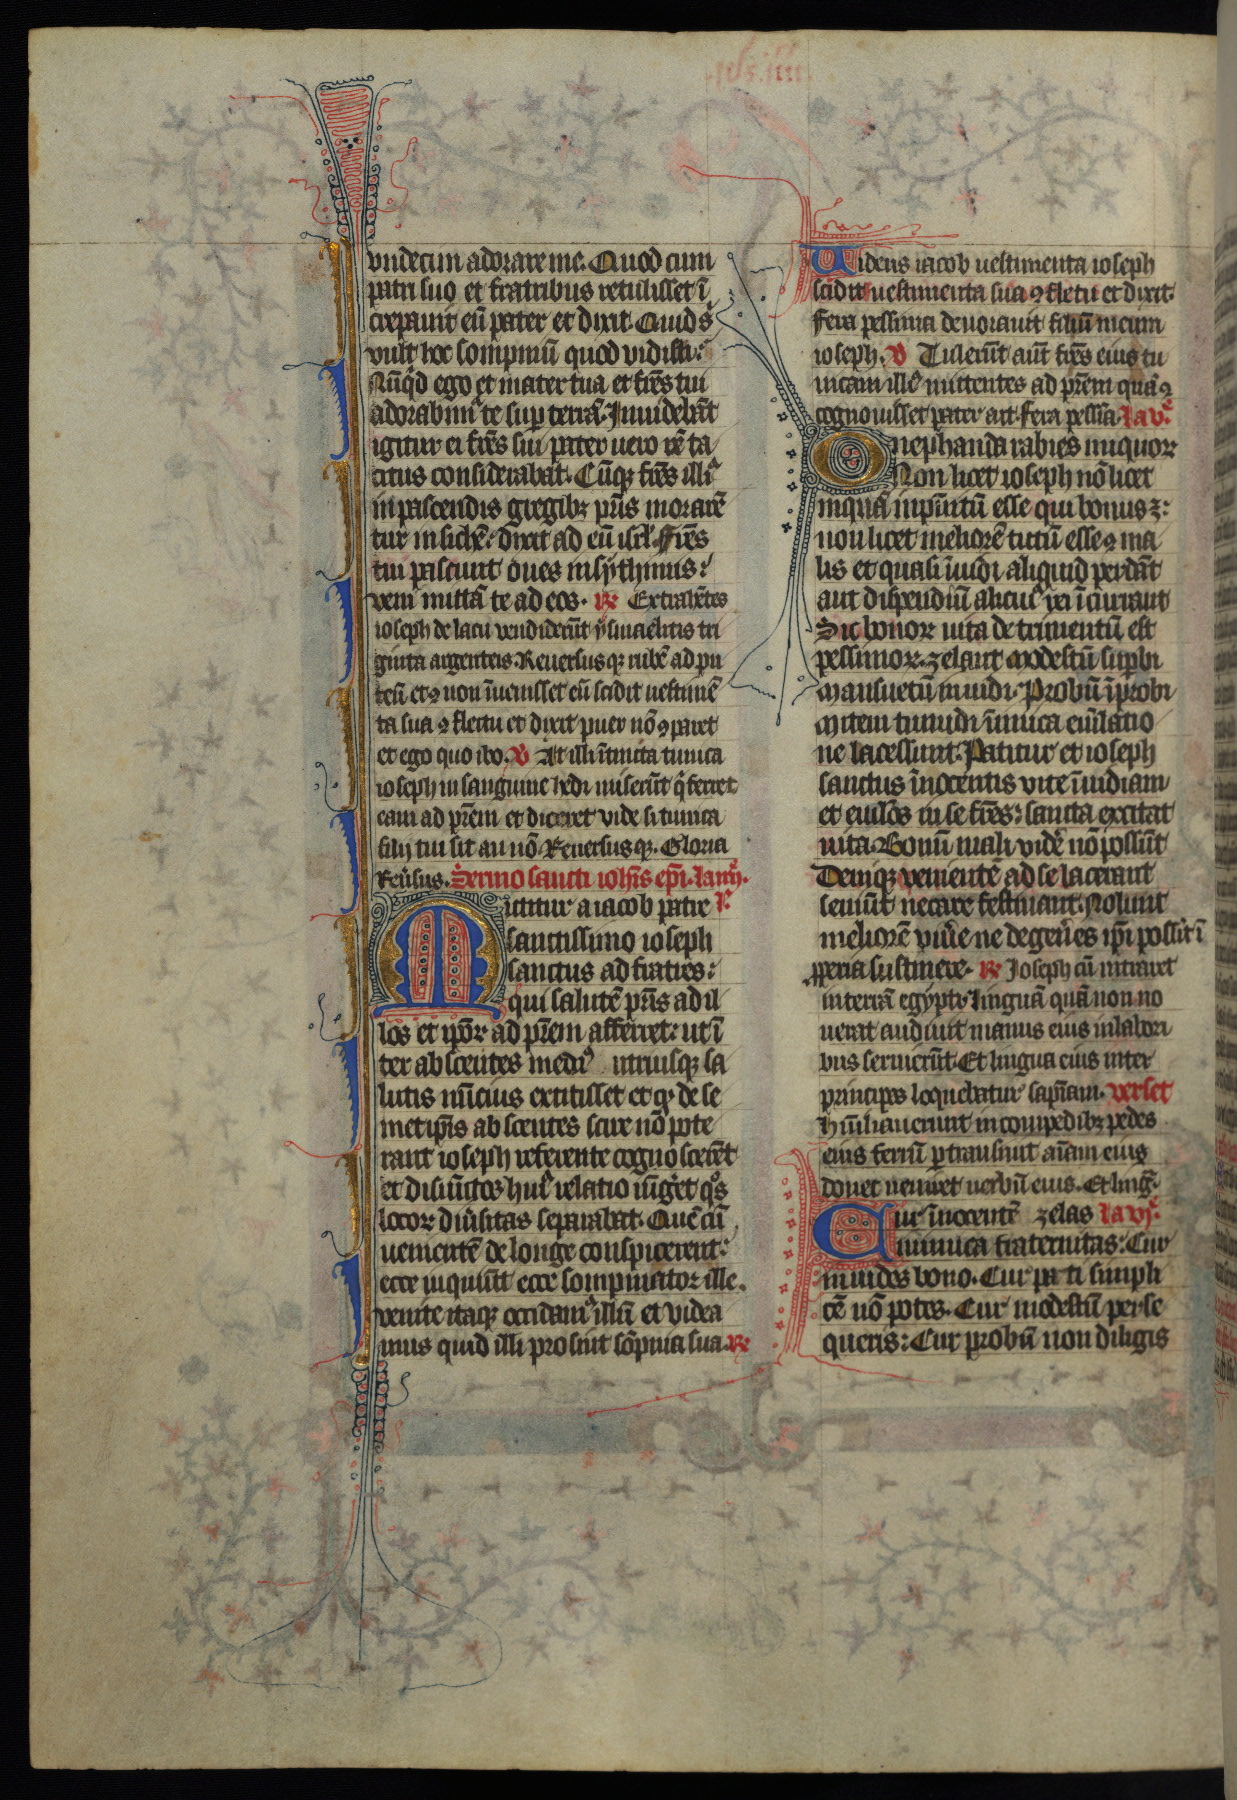 vndecim adorare me. Quod cum
patri suo et fratribus retulisset ī
crepauit eū pater et dixit. Quid s'
vult hoc sompniū quod vidisti:
Nūqd ego et mater tua et frēs tui
adorabim' te sup terrā. Inuidebāt
igitur ei frēs sui pater uero rē ta
citus considerabat. Cūq; frēs illi'
in pascendis gregib; pris morarē
tur in sichē: dixit ad eū isrl'. Frēs
tui pascunt oues in sythimis:
veni mittā te ad eos. R Extrahētes
ioseph de lacu vendiderūt ysmaelitis tri
ginta argenteis. Reuersusq; rubē ad pu
teū et 9 non īuenisset eū scidit uestimē
ta sua 9 fletu et dixit puer nō 9paret
et ego quo ibo. V At illi ītincta tunica
ioseph in sanguine hedi miserūt q' ferret
eam ad prēm et diceret vide si tunica
filij tui sit an nō. Reuersusq;. Gloria
Reusus. Sermo sancti iohis epi. la iiij.
Mittitur a iacob patre R
sanctissimo ioseph
sanctus ad fratres:
qui salutē pris ad il
los et ipor ad prēm afferret: ut ī
ter abscentes medi' utriusq; sa
lutis nūcius extitisset et q de se
metipis abscentes scire nō pote
rant ioseph referente cognoscerēt
et disiūctos hui' relatio iūgeret q's
locor diusitas separabat. Quē cū
uenientē de longe conspicerent:
ecce inquiūt ecce sompniator ille.
venite itaq; occidam' illū et videa
mus quid illi prosint sōpnia sua. R
Uidens iacob uestimenta ioseph
scidit uestimenta sua 9 fletu et dixit.
fera pessima deuorauit filiū meum
ioseph. V Tulerūt aūt frēs eius tu
nicam illi' mittentes ad prēm quā 9
cognouisset pater ait. fera pessīa. la v.
O nephanda rabies iniquor
Non licet ioseph nō licet
inquā inpūitū esse qui bonus ē:
non licet meliorē tutū esse 9 ma
lis et quasi īuidi aliquid perdāt
aut dispendiū alicui' rei īcurrant
Sic bonor uita detrimentū est
pessimor. zelant modestū supbi
Mansuetū inuidi. Probū īprobi
Mitem tumidi inimica emlatio
ne lacessunt. Patitur et ioseph
sanctus īnocentis vite īuidiam
et emlos in se frēs: sancta excitat
uita. Bonū mali vidē nō possūt
Deniq; venientē ad se lacerant
seuiūt necare festinant. Nolunt
meliorē viuē ne degeūes ipi possit ī
pperia sustinere. R Ioseph cū intraret
in terrā egypti. linguā quā non no
uerat audiuit manus eius in labori
bus seruierūt. Et lingua eius inter
principes loquebatur sapiam. verset
Humiliauerunt in compedib; pedes
eius ferrū ptransiuit aīam eius
donec veniret uerbū eius. Et ling.
Cur īnocentē zelas la vj.
inimica fraternitas: Cur
inuides bono. Cur pati simpli
cē nō potes. Cur modestū perse
queris: Cur probū non diligis